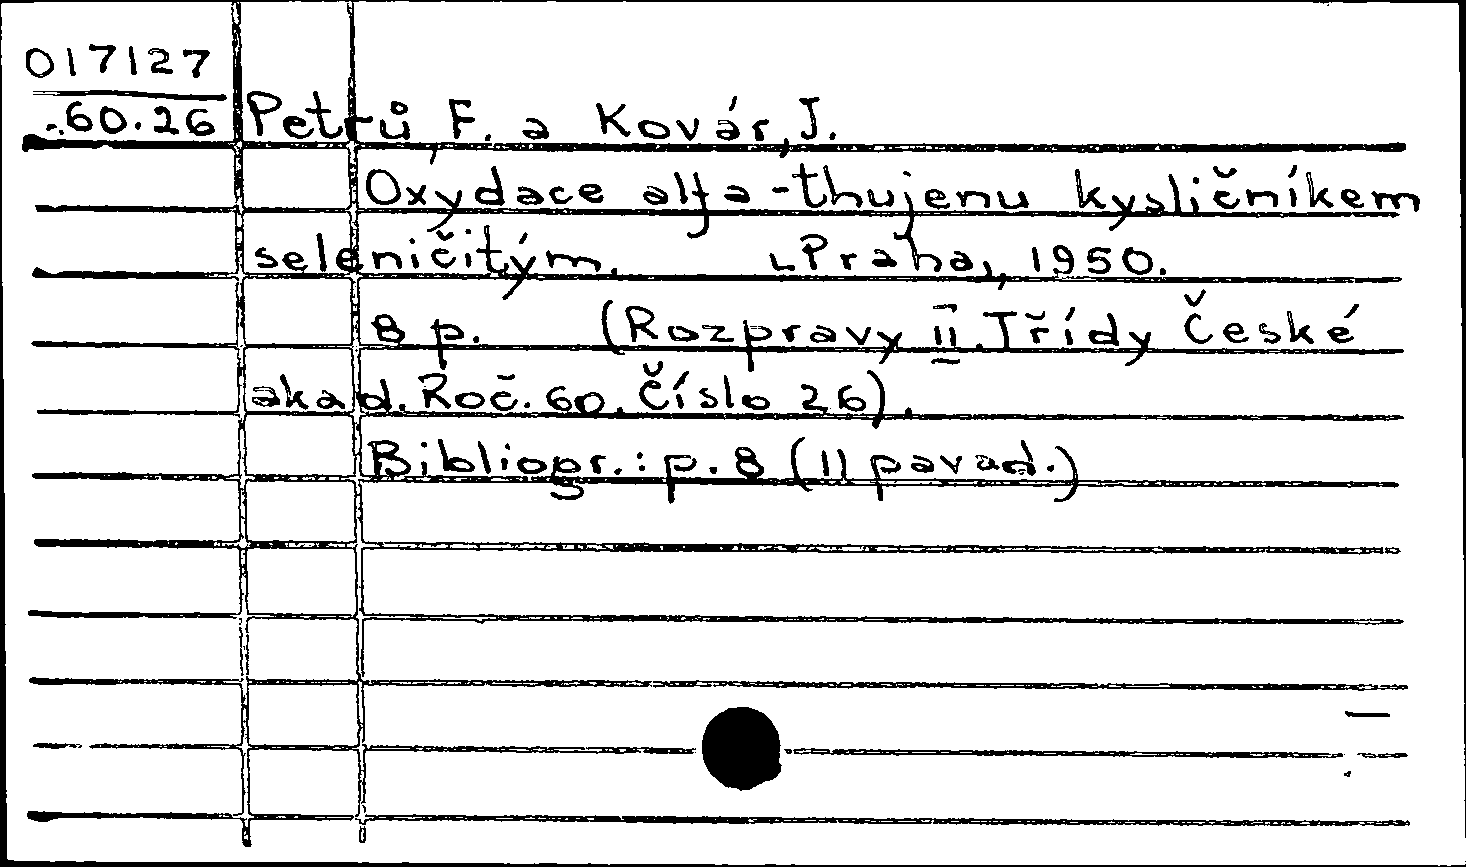 017127
60.26 Petrů, F. a Kovár, J.
Oxydace alfa-thujenu kysličníkem
seleničitým. Praha, 1950.
8 p. (Rozpravy II. Třídy České
akad. Roč. 60. Číslo 26).
Bibliogr.: p. 8 (11 pavad.)